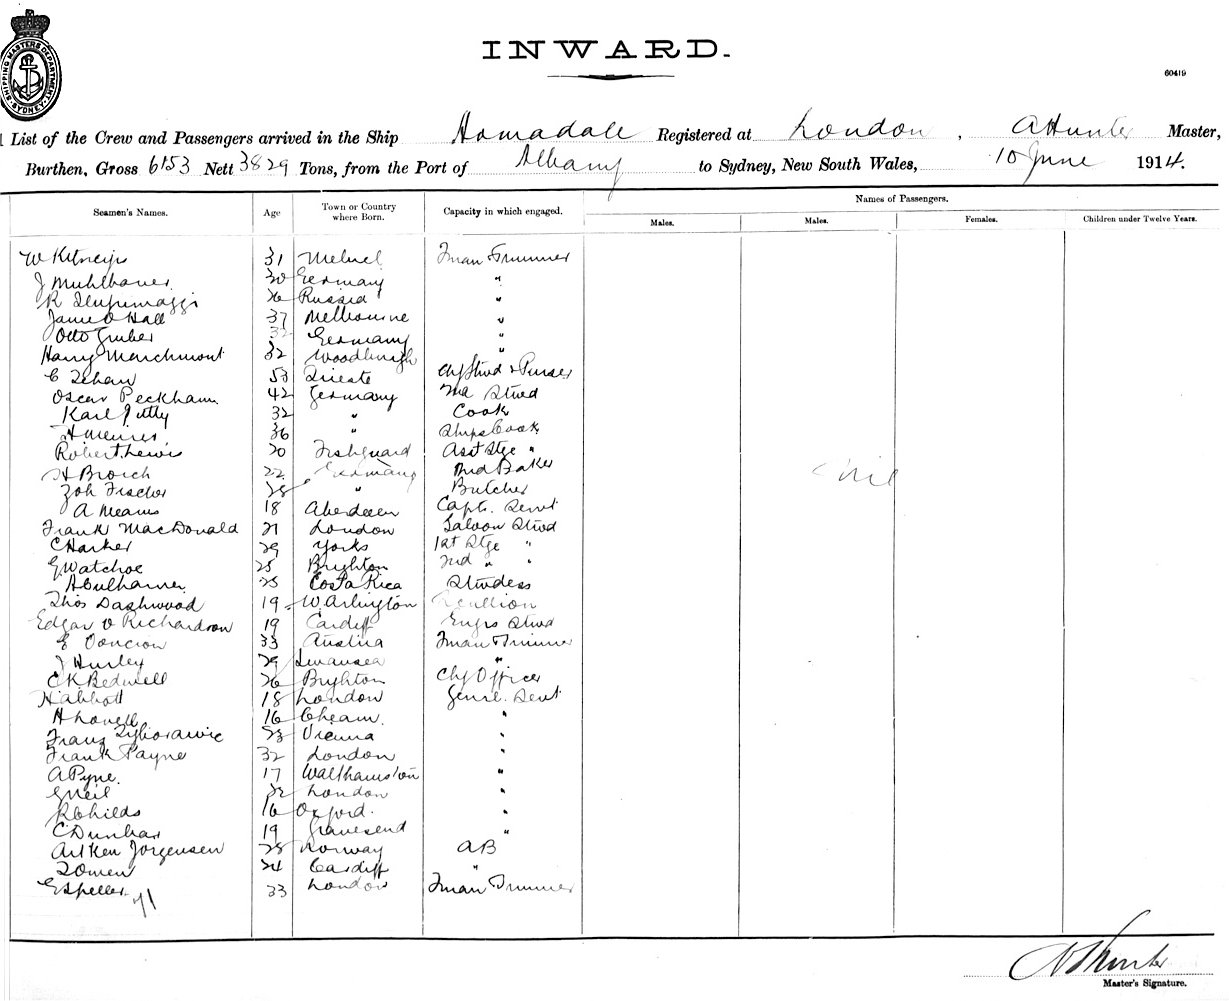 SHIPPING MASTERS DEPARTMENT SYDNEY
INWARD.
60419
List of the Crew and Passengers arrived in the Ship Homadale Registered at London, A Hunter Master,
Burthen, Gross 6153 Nett 3829 Tons, from the Port of Albany to Sydney, New South Wales, 10 June 1914.
Seamen's Names. Age Town or Country where Born. Capacity in which engaged. Names of Passengers.
Males. Males. Females. Children under Twelve Years.
W 31 Fman Trimmer
J Muhlbauer 30 Germany "
R 26 Russia "
James O Hall 37 Melbourne "
Otto Gruber 32 Germany "
Harry Marchmont 32 "
C 53 Trieste Chf Stwd & Purser
Oscar Peckham 42 Germany 2nd Stwd
Karl 32 " Cook
H 36 " Ships Cook
Robert Lewis 20 Fishguard Asst Stge "
H Broich 22 Germany 3rd Baker
Joh Fischer 28 " Butcher
A Means 18 Aberdeen Capts. Servt
Frank MacDonald 21 London Saloon Stwd
C Harker 29 Yorks 1st Stge "
G Watchoe 25 Brighton 2nd " "
25 Costa Rica Stwdess
Nil
Thos Dashwood 19 Warlington Scullion
Edgar V Richardson 19 Cardiff Engrs Stwd
E 33 Austria Fman Trimmer
J Hurley 29 Swansea "
C K Bedwell 26 Brighton Chf Officer
H Abbott 18 London Genrl. Servt
H Lovell 16 Cheam "
Franz 23 Vienna "
Frank Payne 32 London "
A Pyne. 17 Walthamston "
G Neil 22 London "
R Childs 16 Oxford. "
C Dunbar 19 Gravesend "
Aitken Jorgensen 28 Norway AB
J Owen 24 Cardiff "
E Speller 33 London Fman Trimmer
71
A Hunter
Master's Signature.